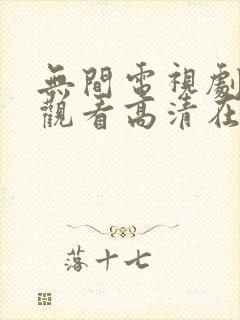 無間電視劇
觀看高清在
落十七